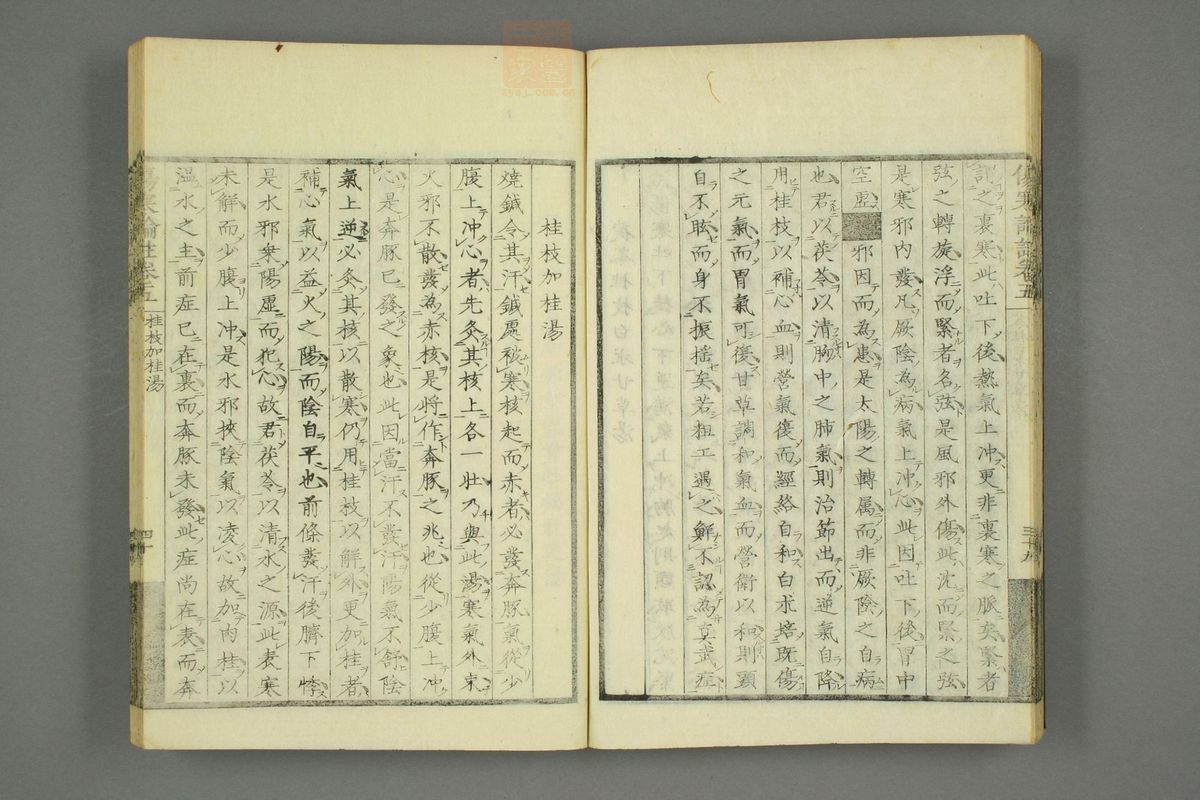 謂之裏寒此吐下後熱氣上冲更非裏寒之脈矣緊者
弦之轉旋浮而緊者名弦是風邪外傷此沈而緊之弦
是寒邪内發凡厥陰為病氣上冲心此因吐下後胃中
空虚 邪因而為患是太陽之轉属而非厥陰之自病
也君以茯苓以清胸中之肺氣則治節出而逆氣自降
用桂枝以補心血則營氣復而經絡自和白朮培既傷
之元氣而胃氣可復甘草調和氣血而營衛以和則頭
自不眩而身不振揺矣若粗工遇之鮮不認為真武症
傷寒論註卷五
三十九
桂枝加桂湯
燒鍼令其汗鍼處被寒核起而赤者必發奔豚氣從少
腹上冲心者先灸其核上各一壮乃與此湯寒氣外束
火邪不散發為赤核是将作奔豚之兆也從少腹上冲
心是奔豚已發之象也此因當汗不發汗陽氣不舒陰
氣上逆必灸其核以散寒仍用桂枝以解外更加桂者
補心氣以益火之陽而陰自平也前條發汗後臍下悸
是水邪乗陽虚而犯心故君茯苓以清水之源此表寒
未解而少腹上冲是水邪挾陰氣以凌心故加肉桂以
温水之主前症已在裏而奔豚未發此症尚在表而奔
傷寒論註卷五
桂枝加桂湯
四十